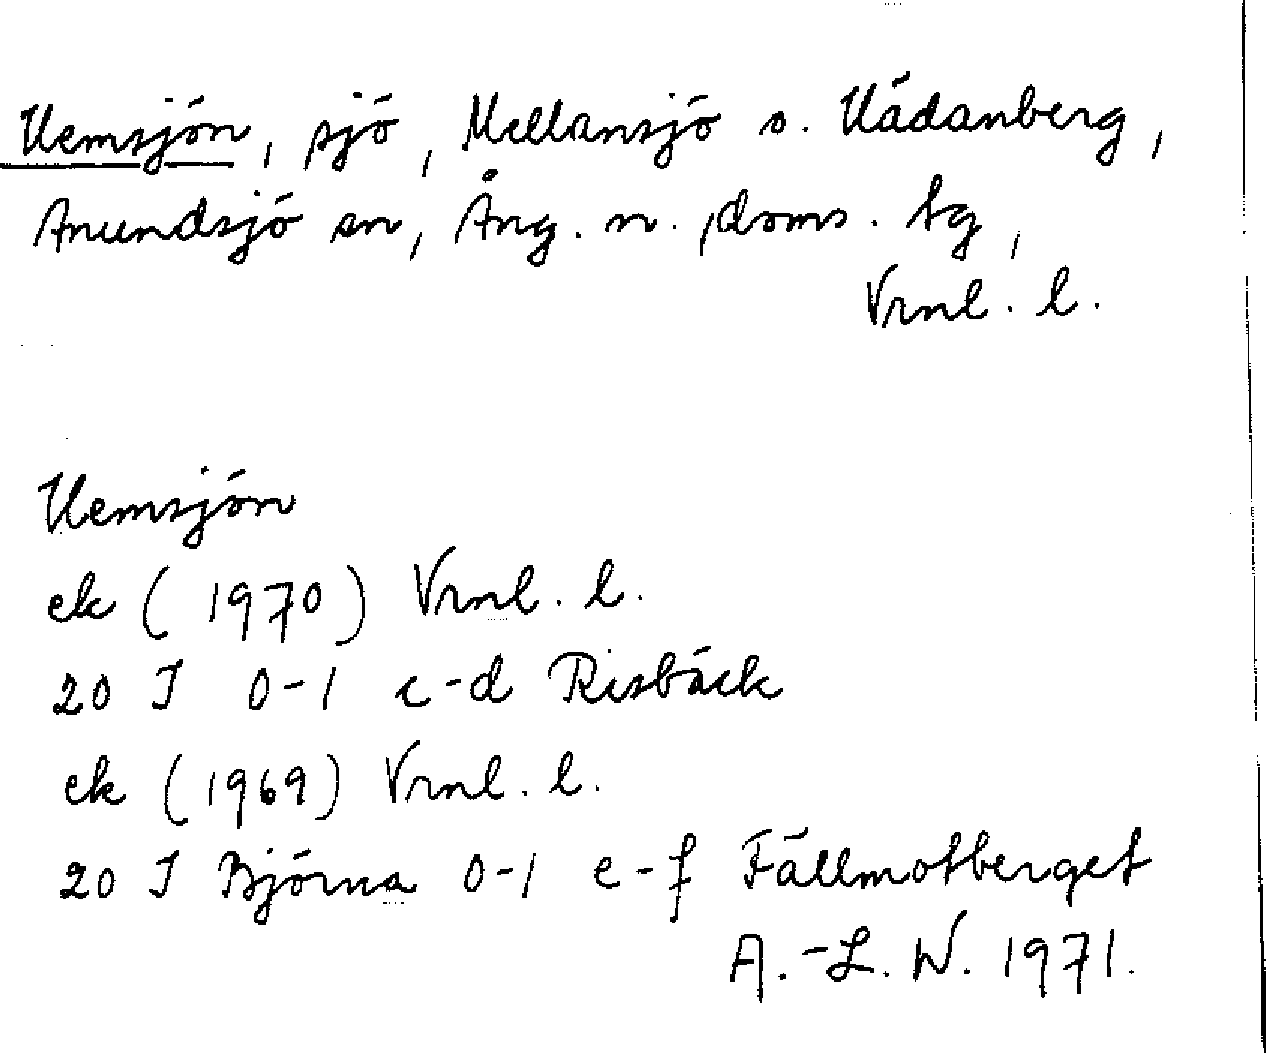 Hemsjön, sjö, Mellansjö o. Hädanberg,
Anundsjö sn, Ång. n. doms. tg,
Vrnl. l.
Hemsjön
ek (1970) Vrnl. l.
20 I 0-1 c-d Risbäck
ek (1969) Vrnl. l.
20 I Björna 0-1 e-f Fällmotberget
A.-L. W. 1971.